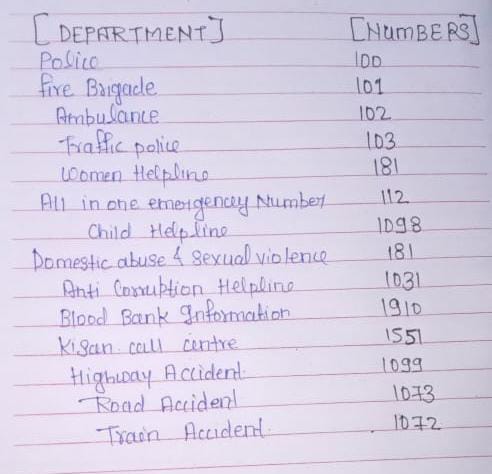 [DEPARTMENT] [NUMBERS]
Police 100
Fire Brigade 101
Ambulance 102
Traffic police 103
Women Helpline 181
All in one emergency Number 112
Child Helpline 1098
Domestic abuse & sexual violence 181
Anti Corruption Helpline 1031
Blood Bank Information 1910
Kisan call centre 1551
Highway Accident 1099
Road Accident 1073
Train Accident 1072